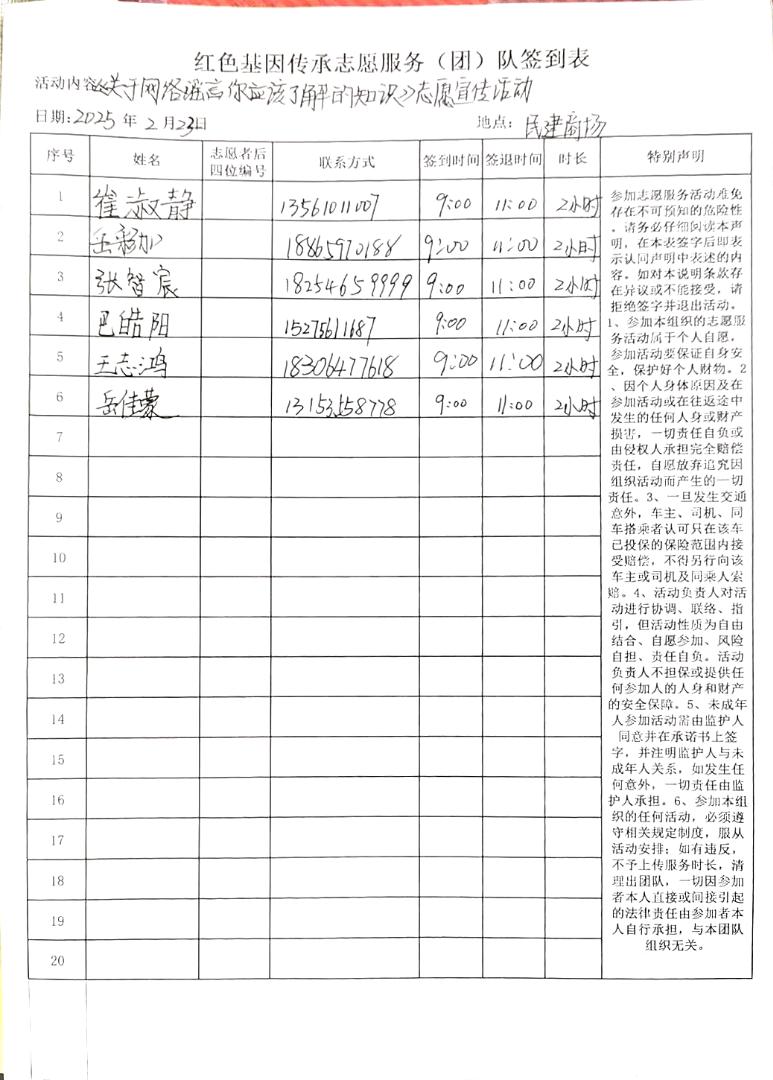 红色基因传承志愿服务（团）队签到表
活动内容：《关于网络谣言你应该了解的知识》志愿宣传活动
日期：2025 年 2 月 23日 地点：民建商场
序号 姓名 志愿者后四位编号 联系方式 签到时间 签退时间 时长 特别声明
1 崔淑静 13561011007 9:00 11:00 2小时
2 18865970188 9:00 11:00 2小时
3 张智宸 18254659999 9:00 11:00 2小时
4 巴皓阳 15275611687 9:00 11:00 2小时
5 王志鸿 18306477618 9:00 11:00 2小时
6 岳佳蒙 13153558778 9:00 11:00 2小时
7
8
9
10
11
12
13
14
15
16
17
18
19
20
参加志愿服务活动难免
存在不可预知的危险性
，请务必仔细阅读本声
明，在本表签字后即表
示认同声明中表述的内
容。如对本说明条款存
在异议或不能接受，请
拒绝签字并退出活动。
1、参加本组织的志愿服
务活动属于个人自愿，
参加活动要保证自身安
全，保护好个人财物。2
、因个人身体原因及在
参加活动或在往返途中
发生的任何人身或财产
损害，一切责任自负或
由侵权人承担完全赔偿
责任，自愿放弃追究因
组织活动而产生的一切
责任。3、一旦发生交通
意外，车主、司机、同
车搭乘者认可只在该车
已投保的保险范围内接
受赔偿，不得另行向该
车主或司机及同乘人索
赔。4、活动负责人对活
动进行协调、联络、指
引，但活动性质为自由
结合、自愿参加、风险
自担、责任自负。活动
负责人不担保或提供任
何参加人的人身和财产
的安全保障。5、未成年
人参加活动需由监护人
同意并在承诺书上签
字，并注明监护人与未
成年人关系，如发生任
何意外，一切责任由监
护人承担。6、参加本组
织的任何活动，必须遵
守相关规定制度，服从
活动安排；如有违反，
不予上传服务时长，清
理出团队，一切因参加
者本人直接或间接引起
的法律责任由参加者本
人自行承担，与本团队
组织无关。